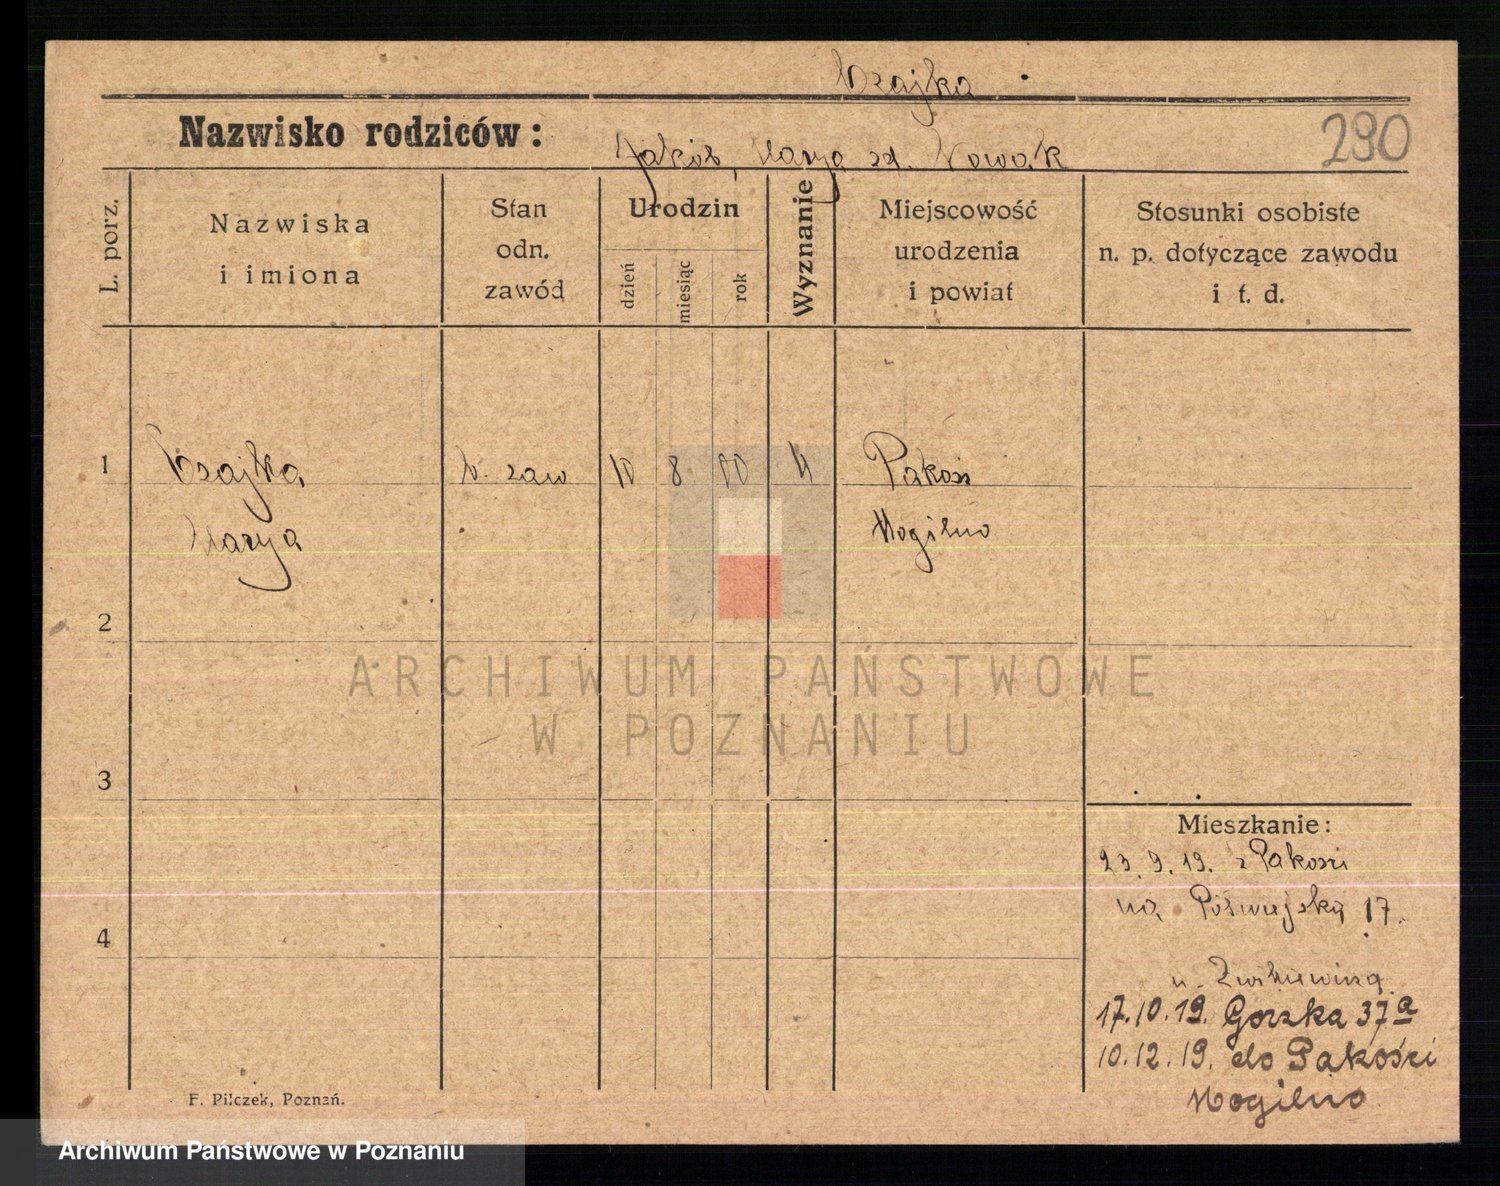 Czajka
Nazwisko rodziców: Jakób, Marya zd. Nowak
290
L. porz.
Nazwiska
i imiona
Stan
odn.
zawód
Urodzin
dzień
miesiąc
rok
Wyznanie
Miejscowość
urodzenia
i powiat
Stosunki osobiste
n. p. dotyczące zawodu
i t. d.
1 Czajka b. zaw 10 8 00 Pakość
Marya Mogilno
2
3
4
Mieszkanie:
23.9.19. z Pakości
na 17.
u.
17.10.19. Gorzka 37a
10.12.19. do Pakości
Mogilno
F. Pilczek, Poznań.
ARCHIWUM PAŃSTWOWE
W POZNANIU
Archiwum Państwowe w Poznaniu